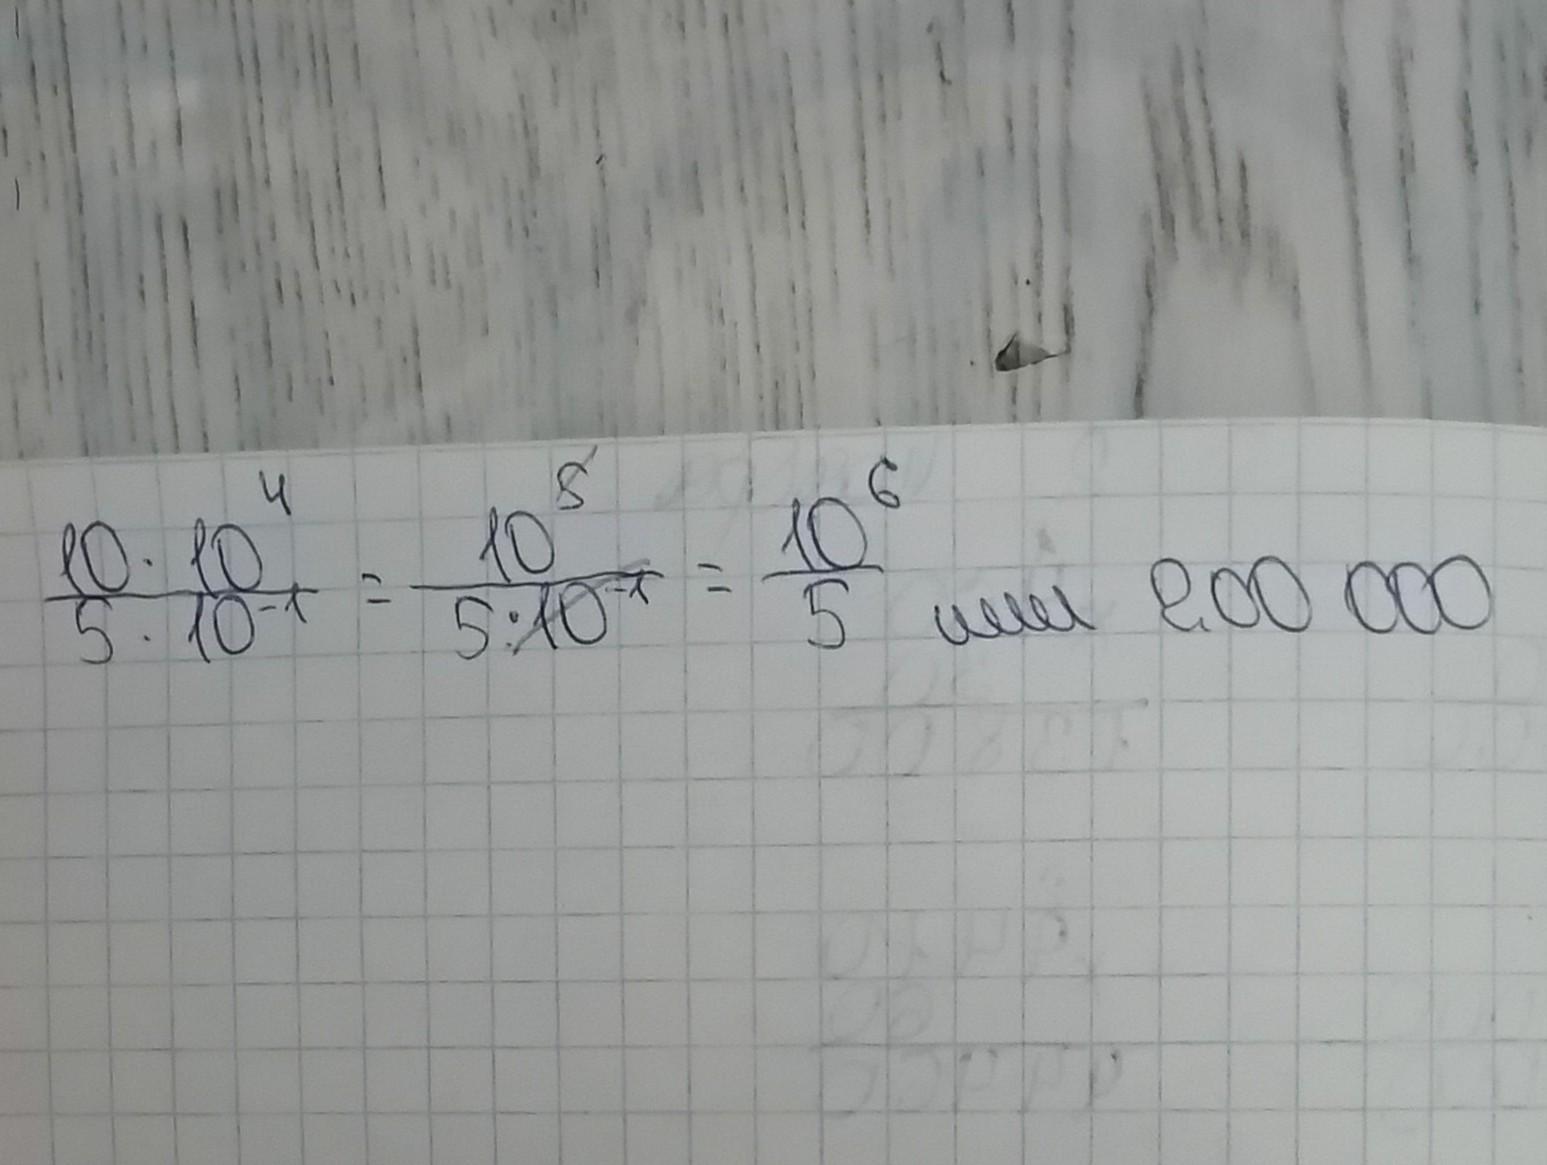 10 · 10⁴ / 5 · 10⁻¹ = 10⁵ / 5 · 10⁻¹ = 10⁶ / 5 или 200 000